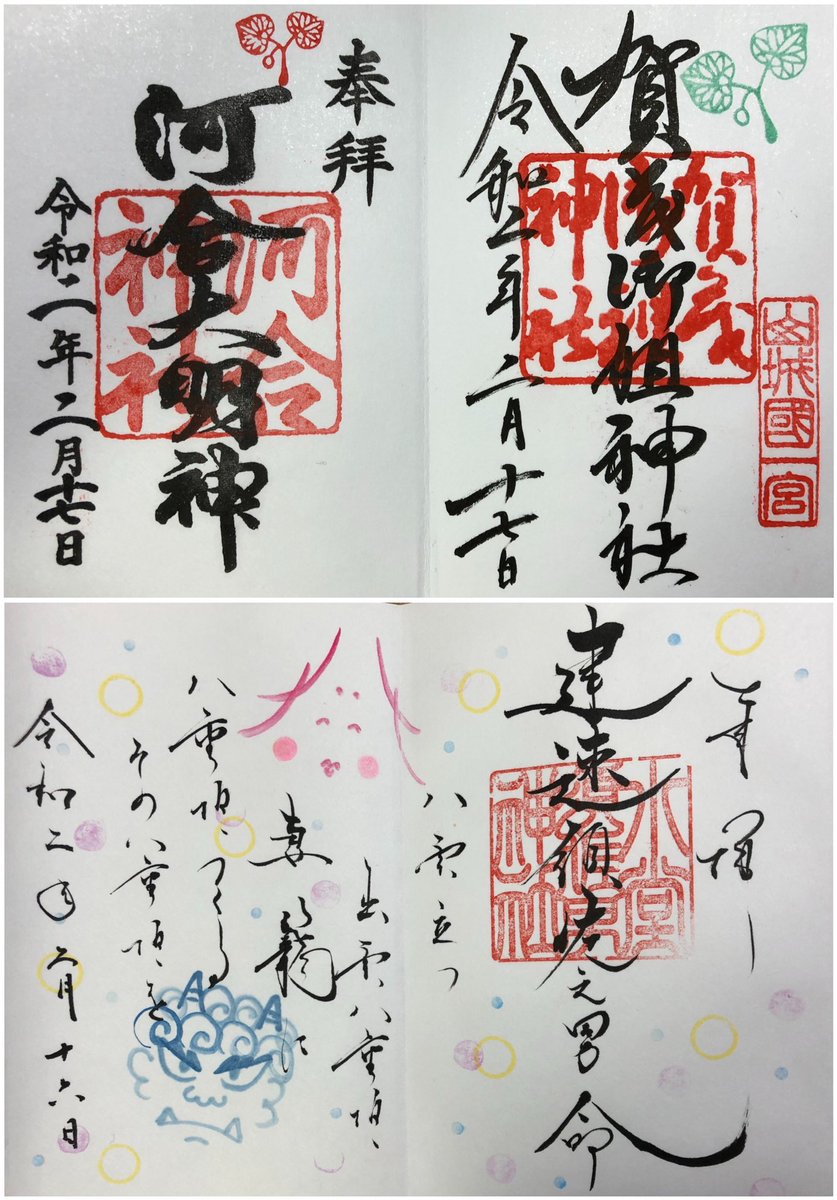 賀茂御祖神社
令和二年二月十七日
賀茂御祖神社
山城國一宮
奉拝
河合大明神
令和二年二月十七日
河合神社
奉拝
建速須佐之男命
水堂須佐男神社
八雲立つ
出雲八重垣
妻籠に
八重垣つくる
その八重垣を
令和二年二月十六日